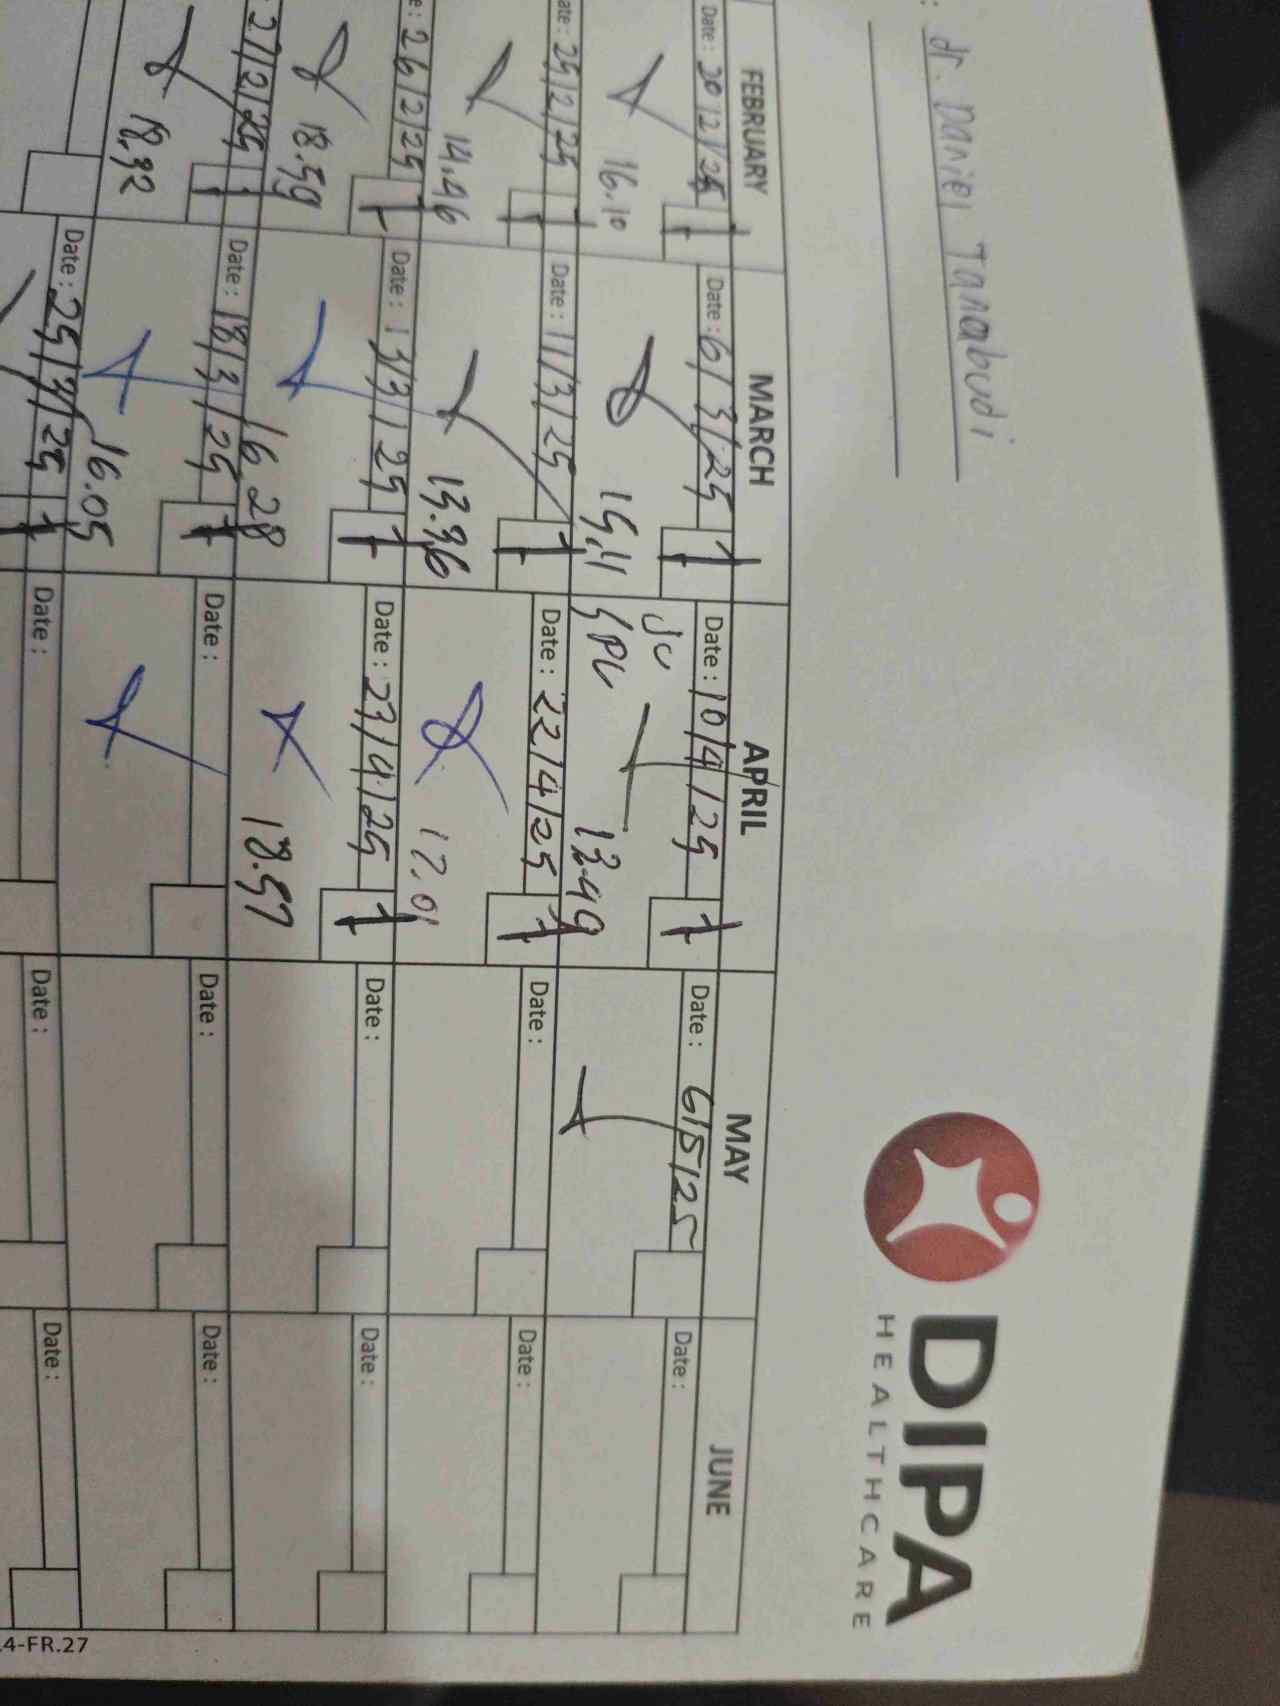 : dr. Daniel Tanabudi
DIPA
HEALTHCARE
FEBRUARY MARCH APRIL MAY JUNE
Date: 20/2/25 1 Date: 6/3/25 1 Date: 10/4/25 1 Date: 6/5/25 Date:
16.10 15.11 13.49
ate: 25/2/25 1 Date: 11/3/25 1 Date: 22/4/25 1 Date: Date:
14.46 13.36 17.01
e: 26/2/25 1 Date: 13/3/25 1 Date: 23/4/25 1 Date: Date:
18.59 16.28 18.57
: 27/2/25 1 Date: 18/3/25 1 Date: Date: Date:
18.32 16.05
Date: 25/3/25 1 Date: Date: Date:
4-FR.27